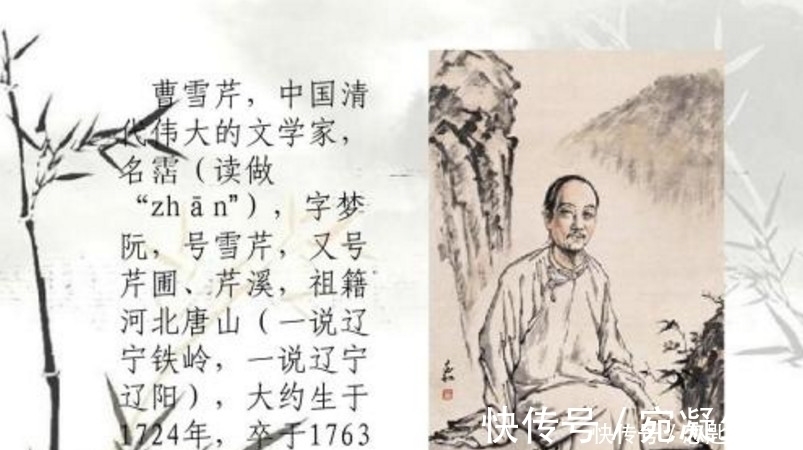 曹雪芹，中国清
代伟大的文学家，
名霑（读做
“zhān”），字梦
阮，号雪芹，又号
芹圃、芹溪，祖籍
河北唐山（一说辽
宁铁岭，一说辽宁
辽阳），大约生于
1724年，卒于1763
快传号 / 宛凝
快传号 /